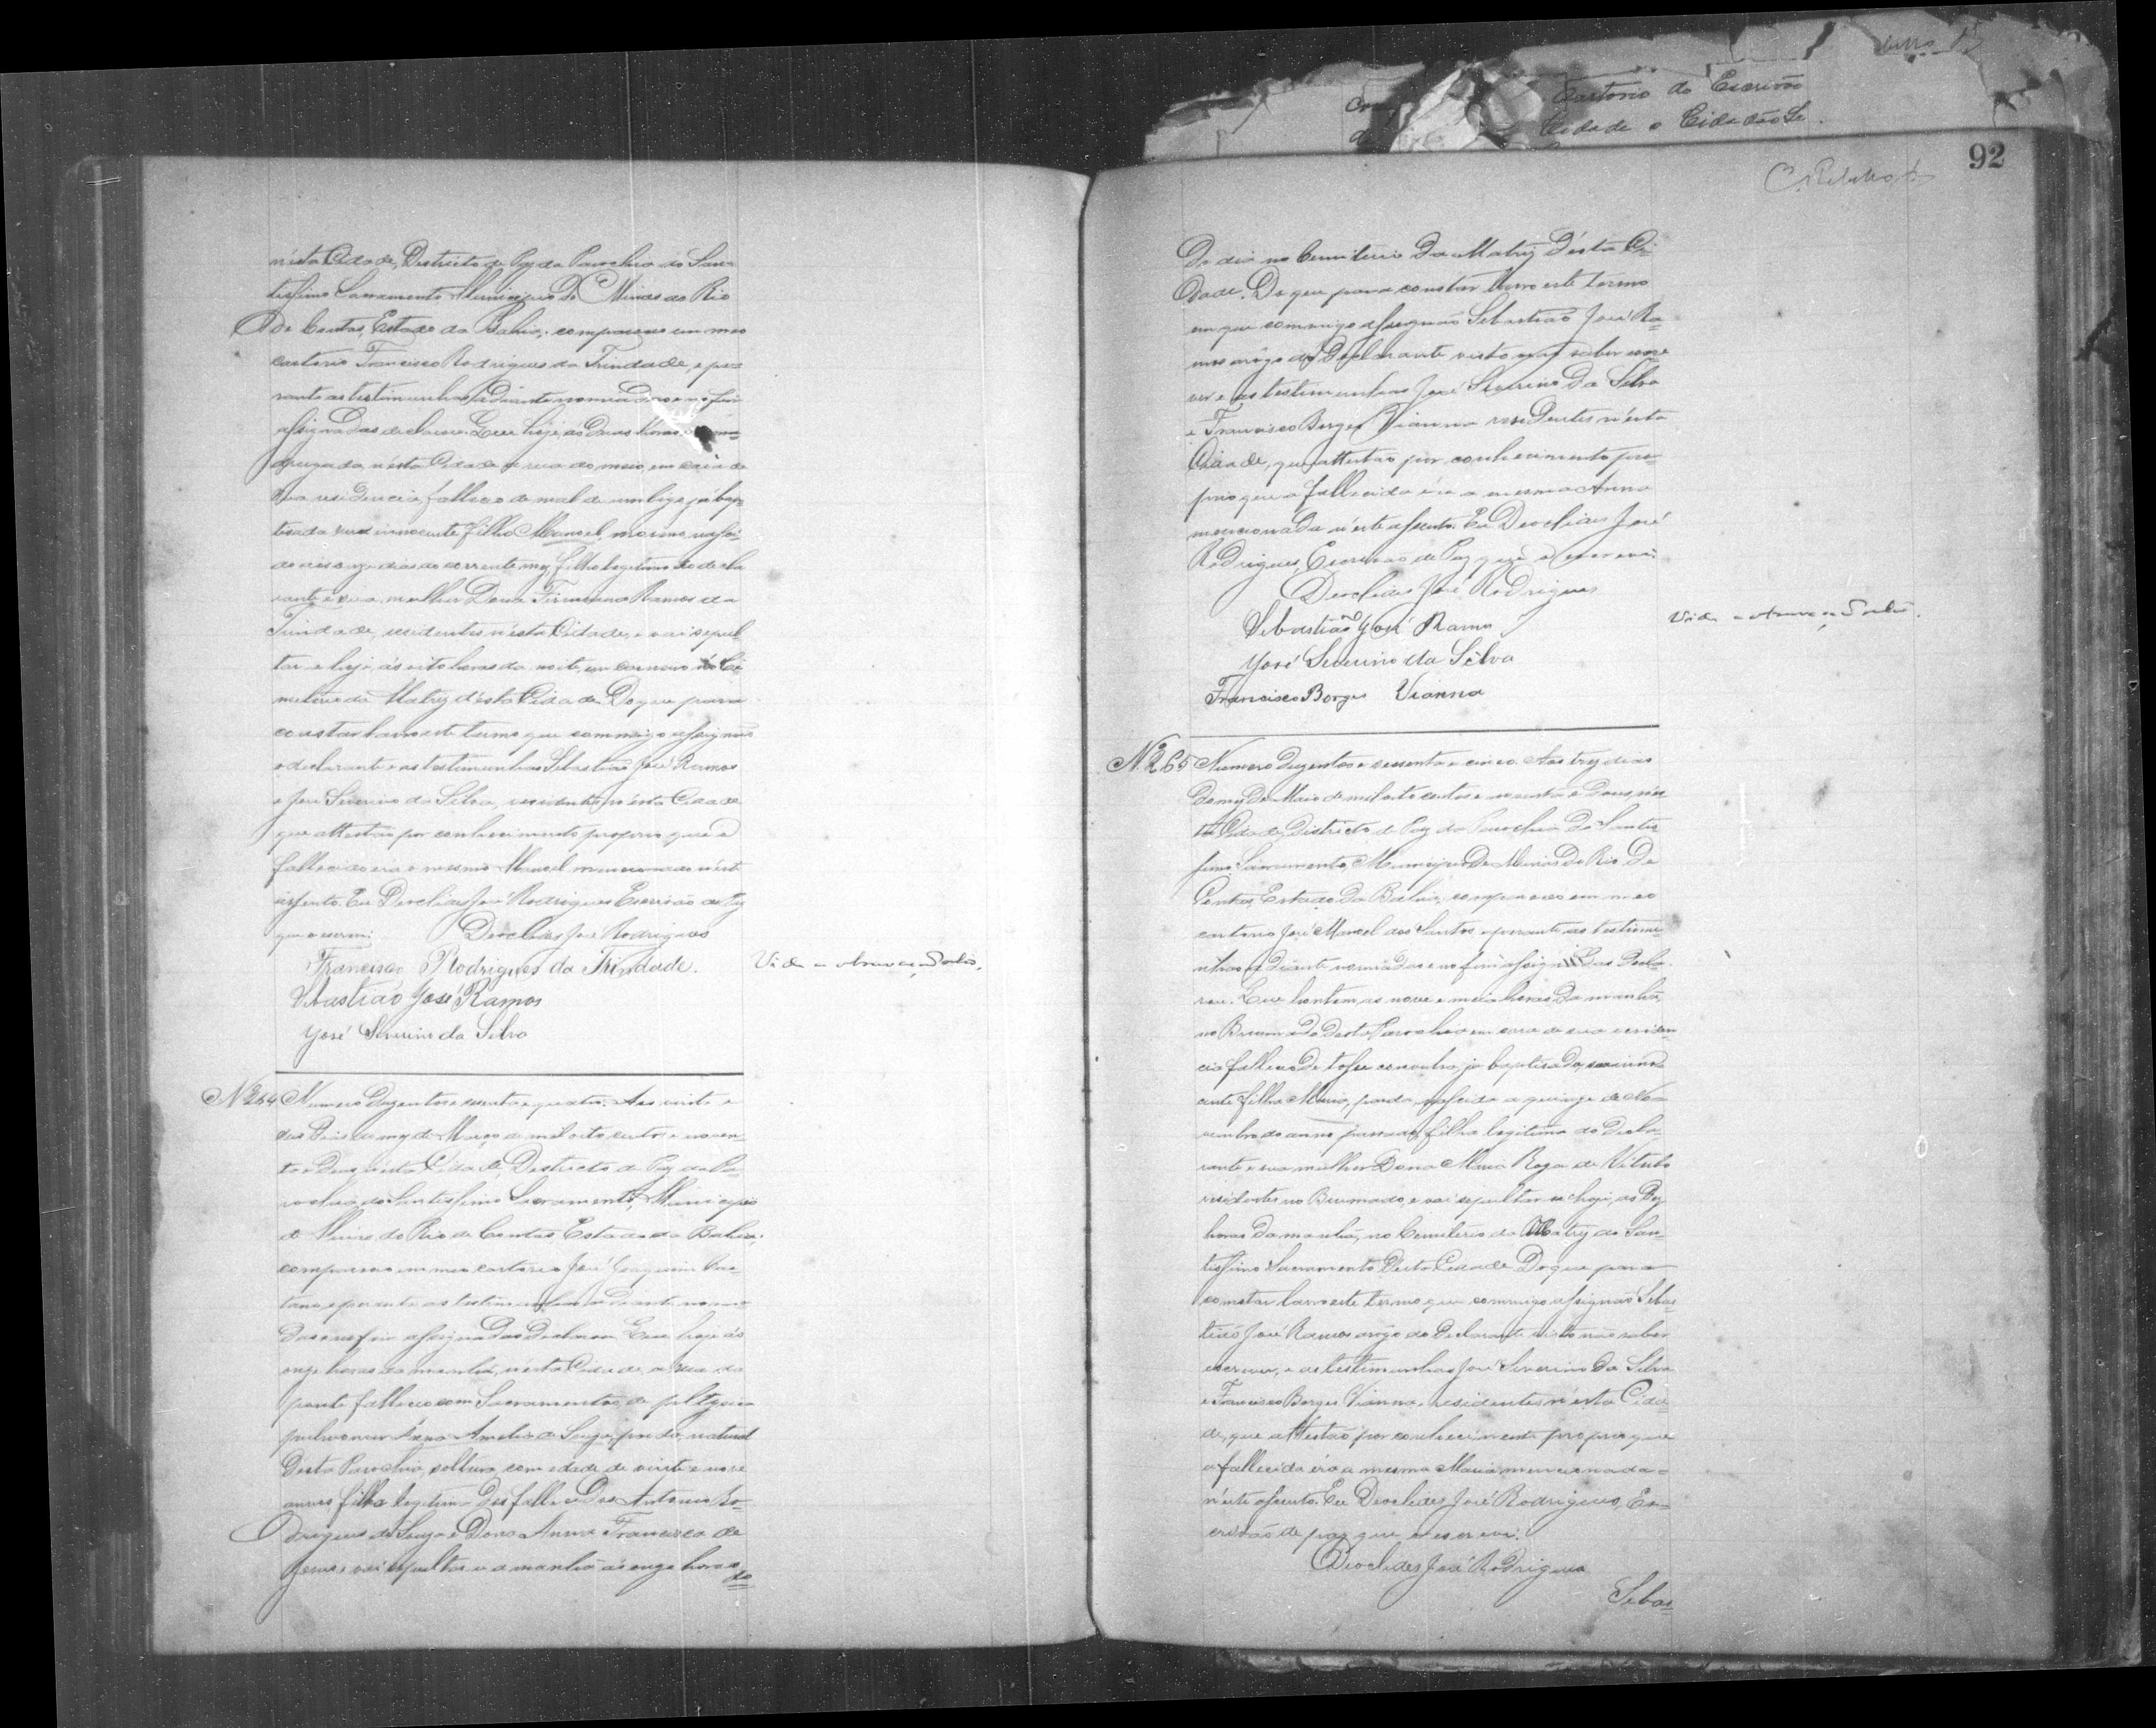 n'esta Cidade, Districto de Paz da Parochia do San-
tissimo Sacramento Municipio de Minas do Rio
De Contas, Estado da Bahia, compareceu em meo
cartorio Francisco Rodrigues da Trindade, e pe-
rante as testimunhas adiante nomeadas e no fim
assignadas declarou: Que hoje, as duas horas da ma-
drugada, n'esta Cidade a rua do meio, em caza de
sua residencia, falleceo de mal de umbigo, já bap-
tisado seu innocente filho Manoel, nasci-
do aos onze dias do corrente mez, filho legitimo do decla
rante e sua mulher Dona Ramos da
Trindade, residentes n'esta Cidade, e vai sepul
tar-se hoje, ás oito horas da noite, em carneiro no Ci
miterio da Matriz d'esta Cidade. Do que para
constar lavro este termo que commigo assignão
o declarante e as testimunhas Sebastião José Ramos
e José Severino da Silva, residentes n'esta Cidade
que attestão por conhecimento proprio que o
fallecido era o mesmo Manoel mencionado n'este
assento. Eu Deoclides José Rodrigues Escrivão de Paz
que o escrevi. Deoclides José Rodrigues
Francisco Rodrigues da Trindade.
Sebastião José Ramos
José Severino da Silva
N. 264 Numero duzentos e sessenta e quatro. Aos vinte e
dias do mez de Março de mil oito centos e noven-
ta e dous, n'esta Cidade, Districto de Paz da Pa-
rochia do Santissimo Sacramento, Municipio
de Minas do Rio de Contas Estado da Bahia,
compareceo em meo cartorio José Joaquim Cae-
tano e perante as testimunhas adiante nomea-
das e no fim assignadas declarou: Que hoje ás
onze horas da manhã, n'esta Cidade, a rua da
ponte falleceo com Sacramentos, de
pulmonar Anna Amelia de Souza, parda, natural
Desta Parochia, solteira, com edade de vinte e nove
annos filha legitima dos fallecidos Antonio Ro-
drigues de Souza e Dona Anna Francisca de
Jesus e vai sepultar-se amanhã ás onze horas
do
92
Cartorio do Escrivão
Cidade o Cidadão
Do dia no Cemiterio Da Matriz D'esta Ci-
dade. Do que para constar lavro este termo
em que commigo assignão Sebastião José Ra-
mos a rôgo do Declarante visto não saber escre
ver e as testimunhas José Severino Da Silva
e Francisco Borges Vianna residentes n'esta
Cidade, que attestão por conhecimento pro-
prio que a fallecida éra a mesma Anna
mencionada n'este assento. Eu Deoclides José
Rodrigues, Escrivão de Paz que o escrevi.
Deoclides José Rodrigues
Sebastião José Ramos
José Severino da Silva
Francisco Borges Vianna
N. 265 Numero duzentos e sessenta e cinco. Aos trez dias
do mez de Maio de mil oito centos e noventa e dous, n'es
ta Cidade, Districto de Paz da Parochia do Santis
simo Sacramento, Municipio De Minas Do Rio De
Contas, Estado Da Bahia, compareceo em meo
cartorio José Manoel dos Santos e perante as testimu-
nhas adiante nomeadas e no fim assignadas decla-
rou: Que hontem, as nove e meia horas da manhã,
no Brumado Desta Parochia em casa de sua residen-
cia falleceo de tosse convulsa, já baptisada, sua inno
cente filha Maria, parda, nascida a quinze de No-
vembro do anno passado, filha legitima do Decla-
rante e sua mulher Dona Maria Roza de Viterbo
residentes no Brumado, e vai sepultar-se hoje, as Dez
horas da manhã, no Cemiterio da Matriz do San-
tissimo Sacramento Desta Cidade. Do que para
constar lavro este termo que commigo assignão Sebas
tião José Ramos a rôgo do Declarante visto não saber
escrever, e as testimunhas José Severino Da Silva
e Francisco Borges Vianna, residentes n'esta Cida-
de, que attestão por conhecimento proprio que
a fallecida éra a mesma Maria mencionada
n'este assento. Eu Deoclides José Rodrigues, Es-
crivão de paz que o escrevi.
Deoclides José Rodrigues
Sebas